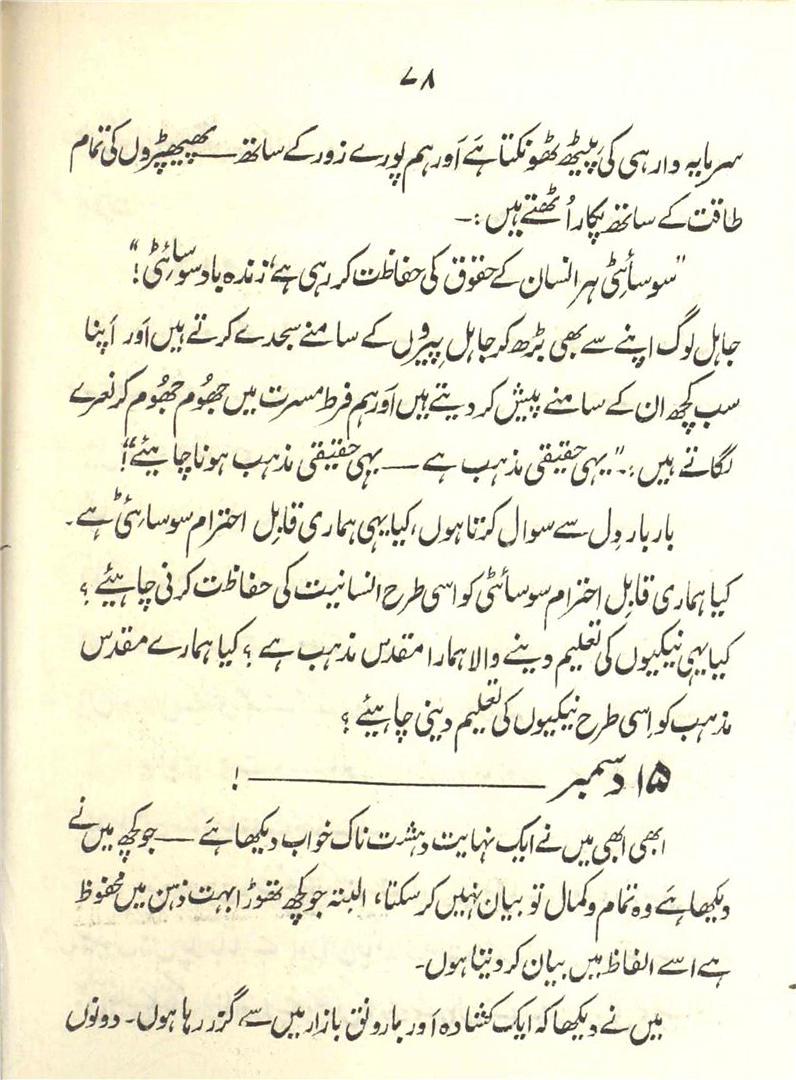 ۷۸
سرمایہ دار ہی کی پیٹھ ٹھونکتا ہَے اَور ہم پورے زور کے ساتھ — پھیپھڑوں کی تمام
طاقت کے ساتھ پکار اُٹھتے ہیں :۔
"سوسائٹی ہر انسان کے حقوق کی حفاظت کر رہی ہے، زندہ باد سوسائِٹی!"
جاہل لوگ اپنے سے بھی بڑھ کر جاہل پِیروں کے سامنے سجدے کرتے ہیں اَور اَپنا
سب کچھ ان کے سامنے پیش کر دیتے ہیں اَور ہم فرط مسرت میں جھُوم جھُوم کر نعرے
لگاتے ہیں :۔ "یہی حقیقی مذہب ہے — یہی حقیقی مذہب ہونا چاہیئے"!
بار بار دِل سے سوال کرتا ہوں، کیا یہی ہماری قابِل احترام سوسائِٹی ہے۔
کیا ہماری قابِل احترام سوسائٹی کو اسی طرح انسانیت کی حفاظت کرنی چاہیئے ؟
کیا یہی نیکیوں کی تعلیم دینے والا ہمارا مقدس مذہب ہے ؟ کیا ہمارے مقدس
مذہب کو اِسی طرح نیکیوں کی تعلیم دینی چاہیئے ؟
۱۵ دسمبر ————— !
ابھی ابھی میں نے ایک نہایت دہشت ناک خواب دیکھا ہَے — جو کچھ میں نے
دیکھا ہَے وہ تمام و کمال تو بیان نہیں کر سکتا، البتہ جو کچھ تھوڑا بہت ذہن میں محفوظ
ہے اسے الفاظ میں بیان کر دیتا ہوں۔
میں نے دیکھا کہ ایک کشادہ اَور بارونق بازار میں سے گزر رہا ہوں۔ دونوں